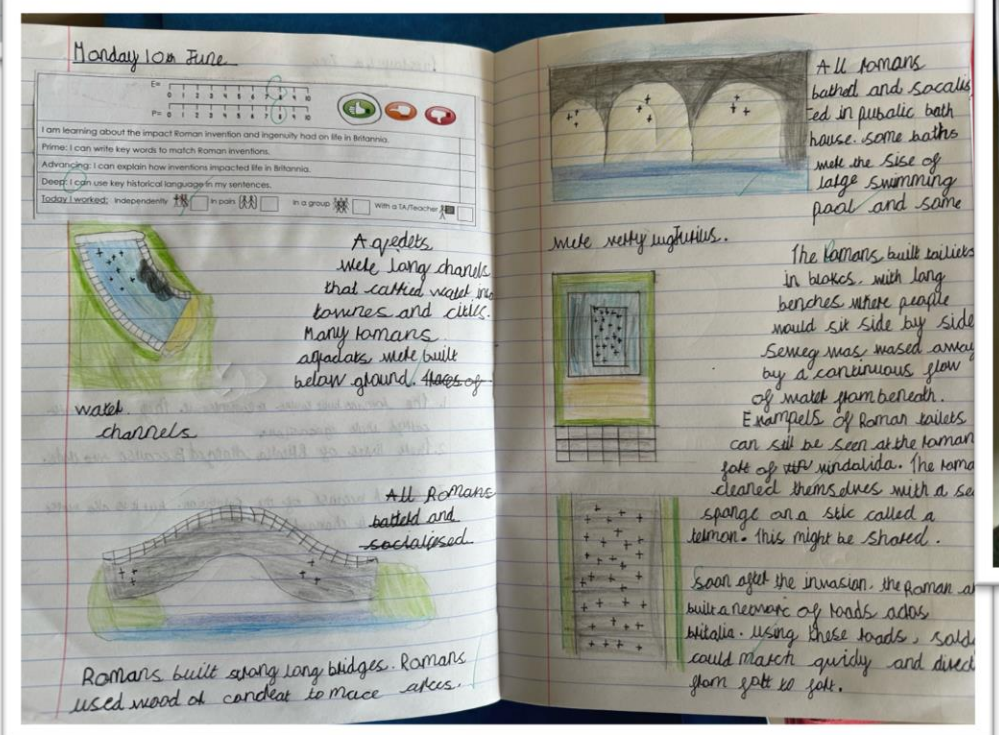 Monday 10th June
E= 0 1 2 3 4 5 6 7 8 9 10
P= 0 1 2 3 4 5 6 7 8 9 10
I am learning about the impact Roman invention and ingenuity had on life in Britannia.
Prime: I can write key words to match Roman inventions.
Advancing: I can explain how inventions impacted life in Britannia.
Deep: I can use key historical language in my sentences.
Today I worked: Independently In pairs In a group With a TA/Teacher
were long chanels
that carried water into
townes and cities.
Many romans
were built
below ground.
water
channels
All Romans
and
socialised
Romans built strong long bridges. Romans
used wood or to arces.
All romans
bathed and socalis
ed in pubalic bath
house. some baths
were the sise of
large swimming
pool and some
were verry
The Romans built toiliets
in blokes, with long
benches where people
would sit side by side
was wased away
by a continuous flow
of water from beneath.
Exampels of Roman toilets
can still be seen at the roman
fort of vindalida. The roma
cleaned themselves with a se
sponge on a called a
This might be shared.
Soon after the invasion, the Roman ar
built a of roads
using these roads, sold
could march and direc
from fort to fort.